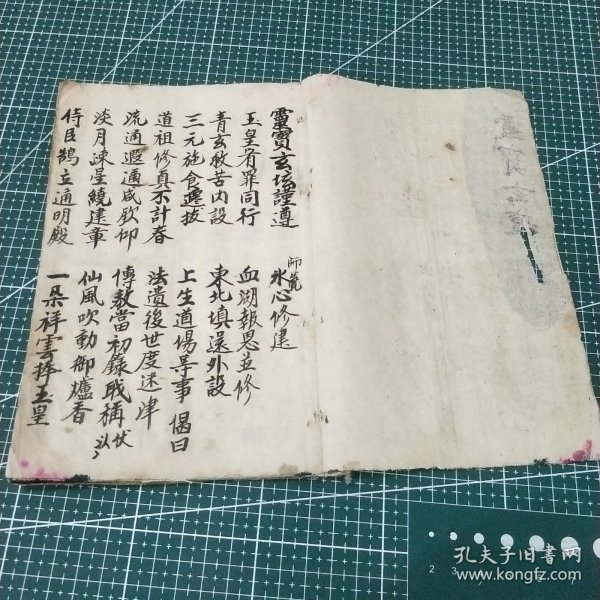 靈寶玄壇謹遵
師範
氷心修建
玉皇宥罪同行
血湖報恩並修
青玄救苦内設
東北填還外設
三元施食遷拔
上生道場等事 偈曰
道祖修真不計春
法遺後世度迷津
流通遐邇咸欽仰
傳教當初錄職稱
伏以
淡月疎星繞建章
仙風吹動御爐香
侍臣鵠立通明殿
一朵祥雲捧玉皇
靈寶
孔夫子旧书网
www.kongfz.com
2 3